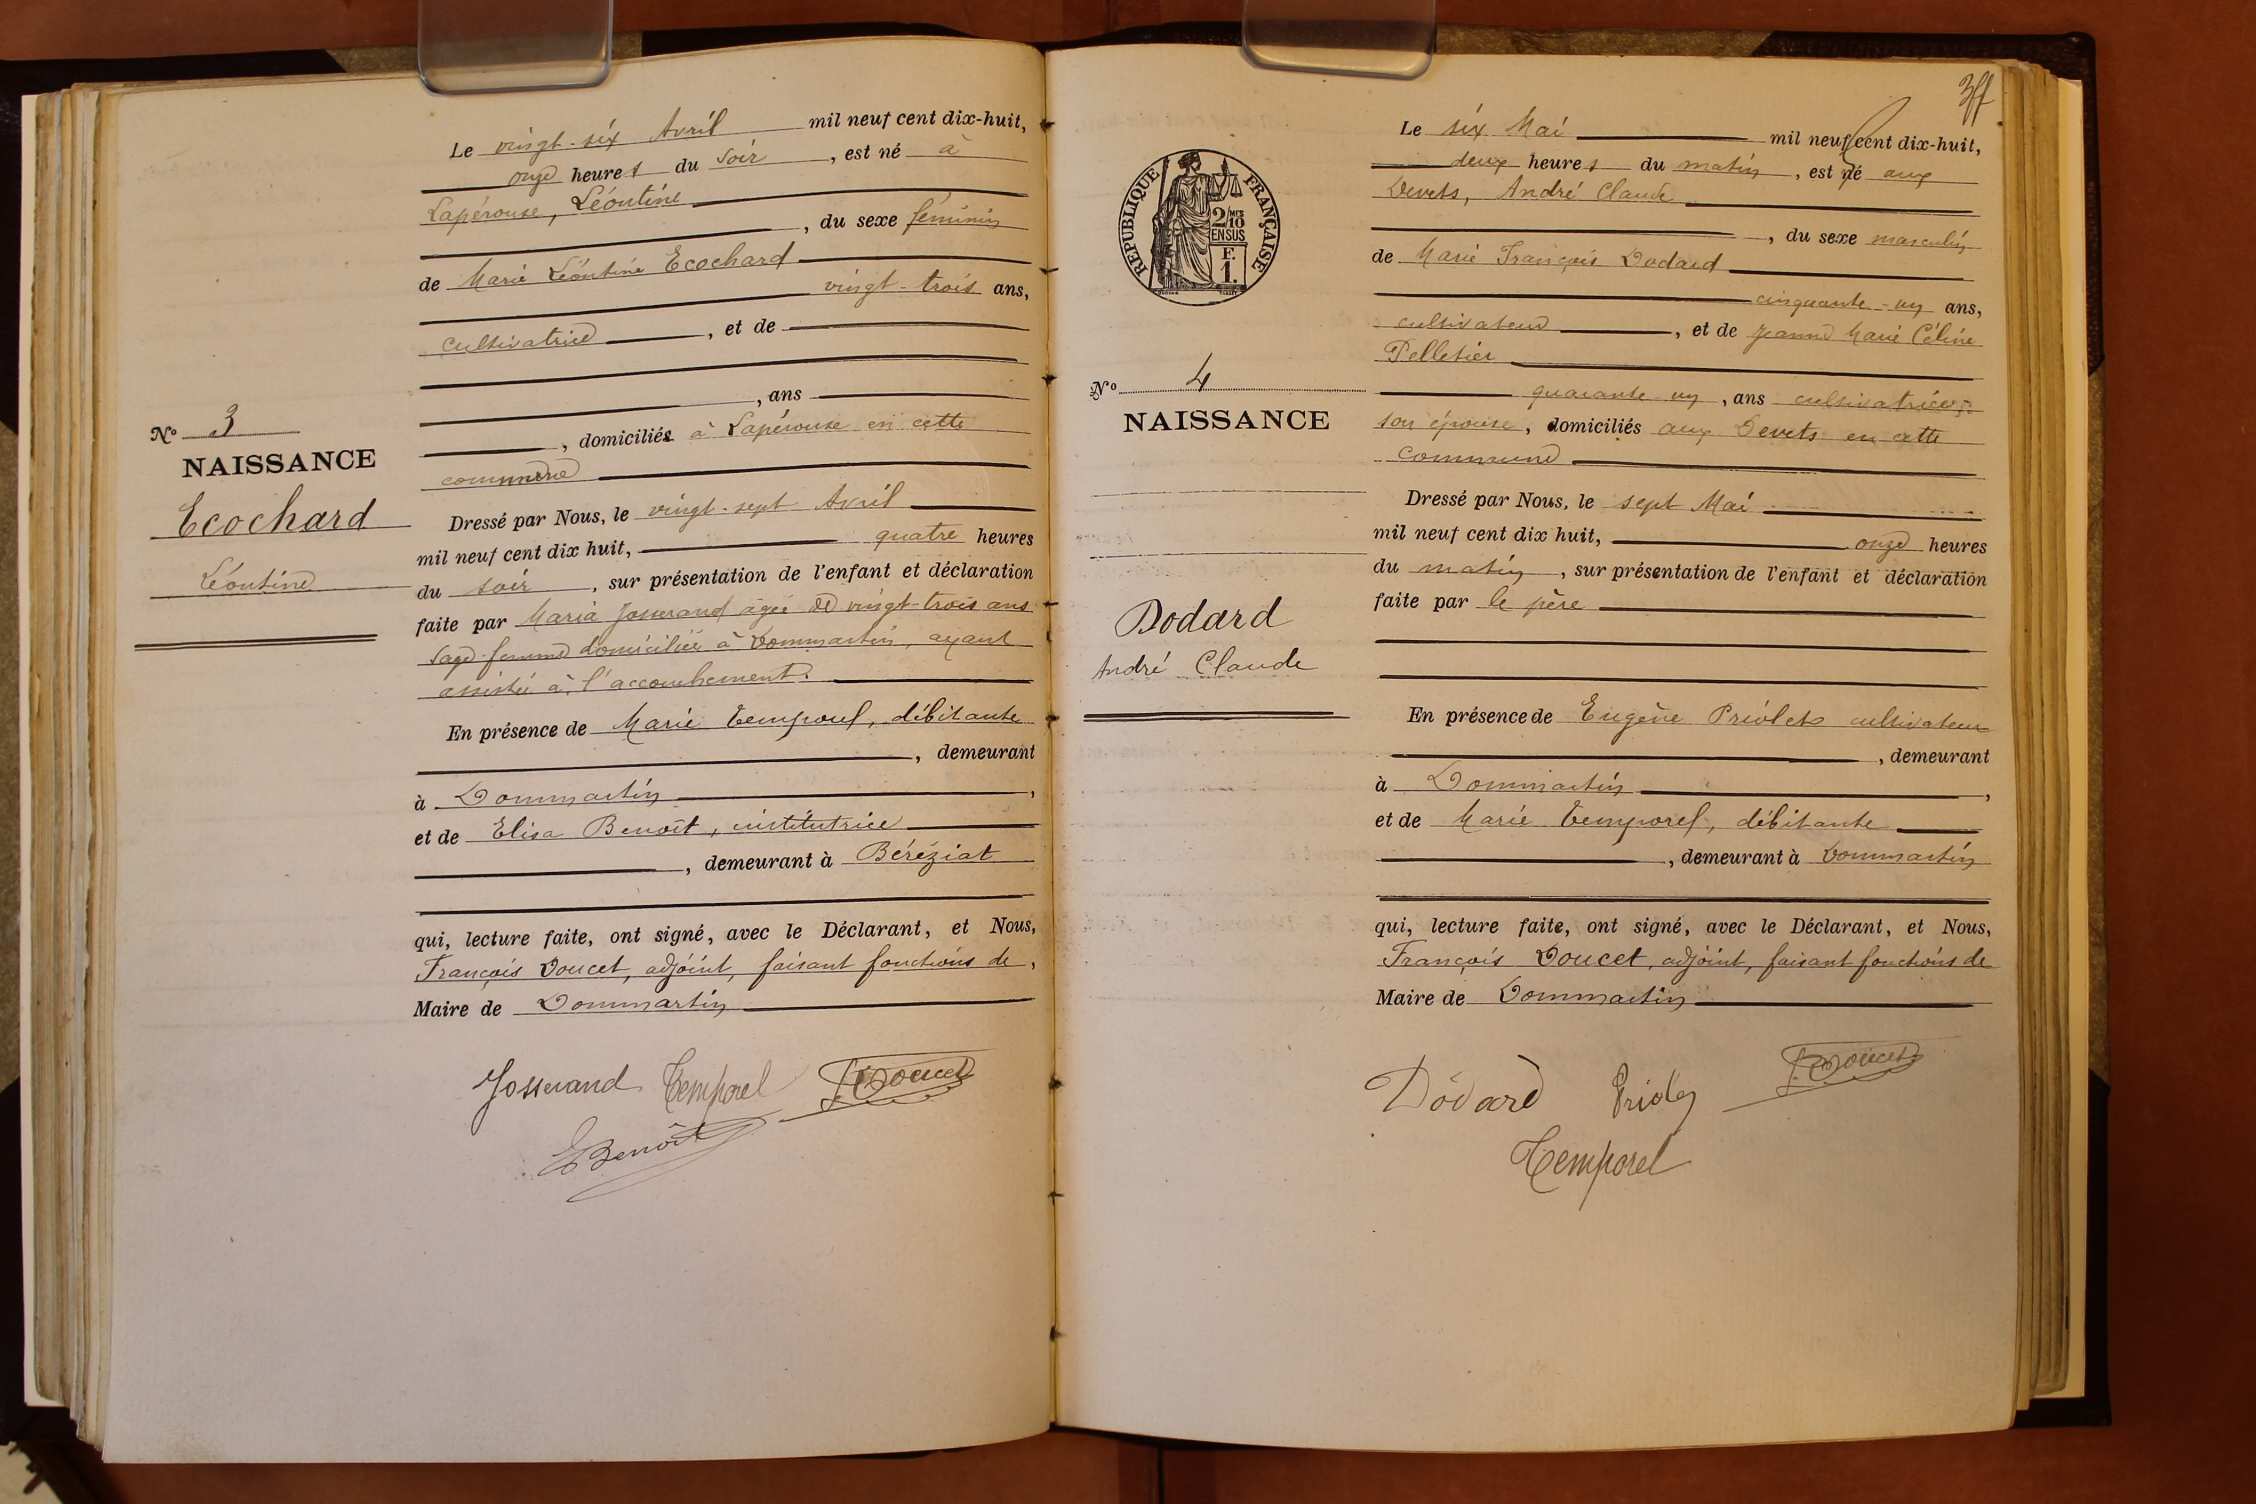 Le vingt-six Avril mil neuf cent dix-huit,
onze heures du soir, est né à
Lapérouse, Léontine
, du sexe féminin
de Marie Léontine Ecochard
vingt-trois ans,
cultivatrice, et de
, ans
, domiciliés à Lapérouse en cette
commune
Dressé par Nous, le vingt-sept Avril
mil neuf cent dix huit, quatre heures
du soir, sur présentation de l'enfant et déclaration
faite par Maria Josserand âgée de vingt-trois ans
sage-femme domiciliée à Dommartin, ayant
assistée à l'accouchement.
En présence de Marie Temporel, débitante
, demeurant
à Dommartin,
et de Elisa Benoît, institutrice
, demeurant à Béréziat
qui, lecture faite, ont signé, avec le Déclarant, et Nous,
François Doucet, adjoint, faisant fonctions de,
Maire de Dommartin
Josserand Temporel F. Doucet
E Benoît
No 3
NAISSANCE
Ecochard
Léontine
RÉPUBLIQUE FRANÇAISE
2/10 MES
EN SUS
F.
1.
No 4
NAISSANCE
Dodard
André Claude
Le six Mai mil neuf cent dix-huit,
deux heures du matin, est né aux
Devets, André Claude
, du sexe masculin
de Marie François Dodard
cinquante-un ans,
cultivateur, et de Jeanne Marie Céline
Pelletier
quarante un, ans cultivatrice
son épouse, domiciliés aux Devets en cette
commune
Dressé par Nous, le sept Mai
mil neuf cent dix huit, onze heures
du matin, sur présentation de l'enfant et déclaration
faite par le père
En présence de Eugène Priolet cultivateur
, demeurant
à Dommartin,
et de Marie Temporel, débitante
, demeurant à Dommartin
qui, lecture faite, ont signé, avec le Déclarant, et Nous,
François Doucet, adjoint, faisant fonctions de
Maire de Dommartin
Dodard F. Doucet
Temporel